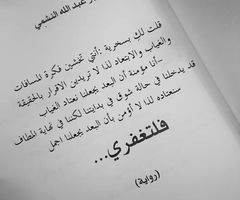 عبد الله النشمي
قلت لك بسخرية : أنتي تخشين فكرة المسافات
والغياب والابتعاد لذا لا تريدين الاقرار بالحقيقة
-أنا مؤمنة أن البعد يجعلنا نعتاد الغياب
قد يدخلنا في حالة شوق في بدايتنا لكننا في نهاية المطاف
سنعتاده لذا لا أؤمن بأن البعد يجعلنا اجمل
فلتغفري...
(رواية)